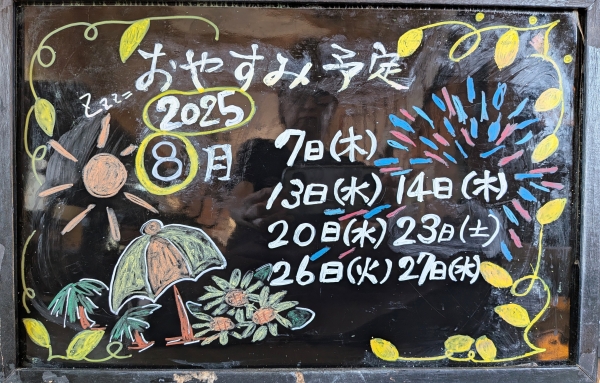 おやすみ予定
Zzz=
2025
8月
7日(木)
13日(水) 14日(木)
20日(水) 23日(土)
26日(火) 27日(水)